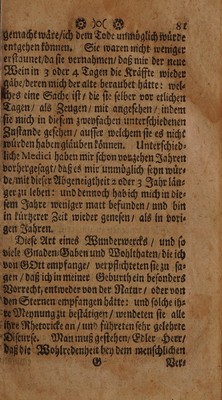 81
gemacht wäre/ ich dem Tode unmöglich würde
entgehen können. Sie waren nicht weniger
erstaunet/ da sie vernahmen/ daß mir der neue
Wein in 3 oder 4 Tagen die Kräffte wieder
gäbe/ deren mich der alte beraubet hätte: wel-
ches eine Sache ist/ die sie selber vor etlichen
Tagen/ als Zeugen/ mit angesehen/ indem
sie mich in diesem zweyfachen unterschiedenen
Zustande gesehen/ ausser welchem sie es nicht
würden haben gläuben können. Unterschied-
liche Medici haben mir schon vor zehen Jahren
vorhergesagt/ daß es mir unmöglich seyn wür-
de/ mit dieser Abgeneigtheit 2 oder 3 Jahr län-
ger zu leben: und dennoch hab ich mich in die-
sem Jahre weniger matt befunden/ und bin
in kürtzerer Zeit wieder genesen/ als in vori-
gen Jahren.
Diese Art eines Wunderwercks/ und so
viele Gnaden-Gaben und Wohlthaten/ die ich
von GOtt empfange/ verpflichteten sie zu sa-
gen/ daß ich in meiner Geburth ein besonders
Vorrecht, entweder von der Natur/ oder von
den Sternen empfangen hätte: und solche ih-
re Meynung zu bestätigen/ wendeten sie alle
ihre Rhetoricke an/ und führeten sehr gelehrte
Discurse. Man muß gestehen/ Edler Herr/
daß die Wohlredenheit bey dem menschlichen
G Ver-